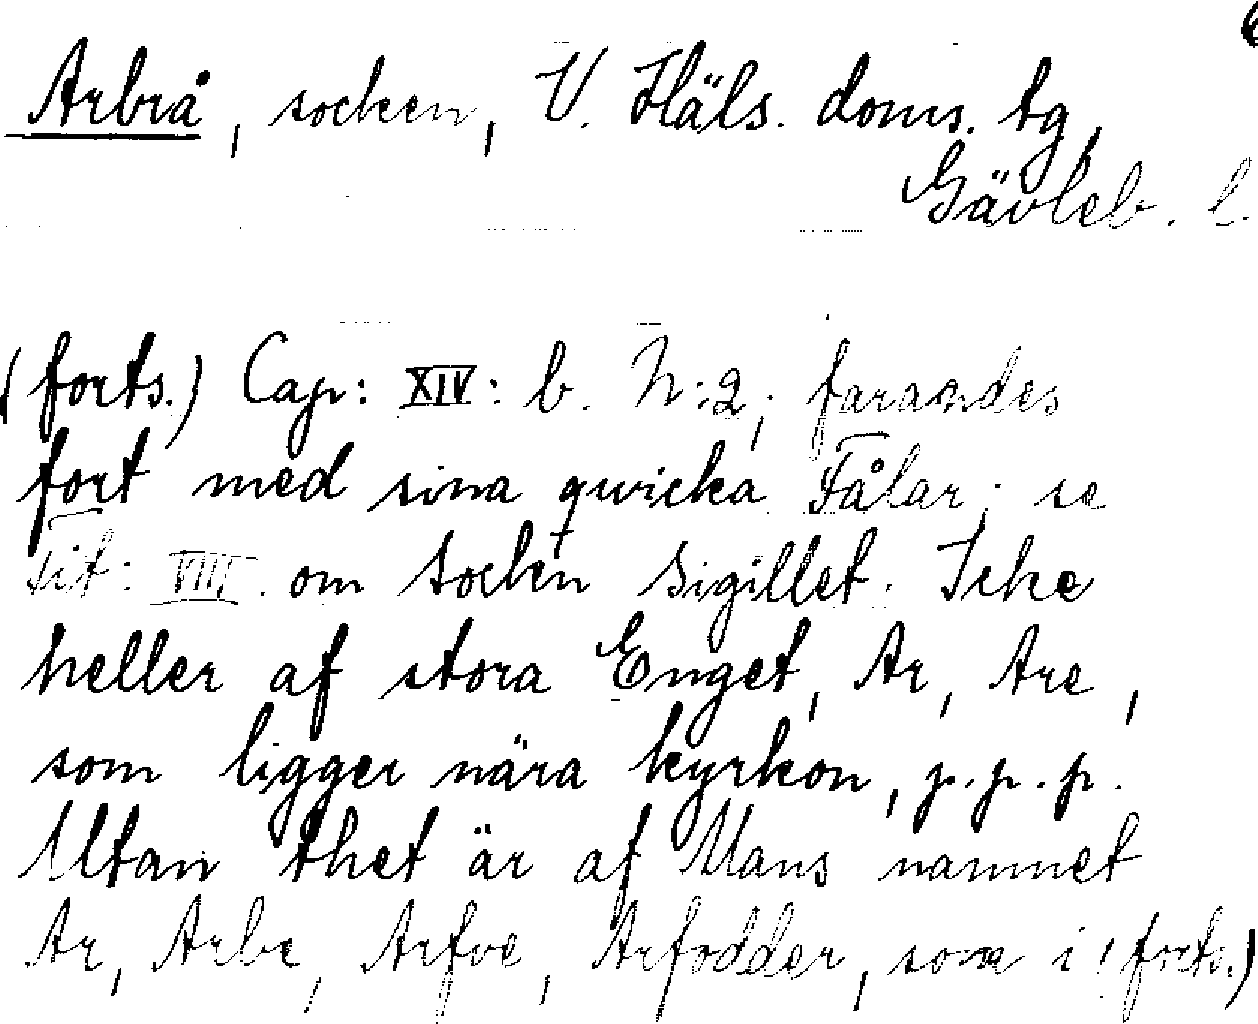 Arbrå, socken, V. Häls. doms. tg,
Gävleb. l.
(forts.) Cap: XIV: b. N:2, farandes
fort med sina qwicka Fålar; se
Tit: VIII. om Socken Sigillet. Icke
heller af stora Enget, Ar, Are,
som ligger nära kyrkon, p.p.p.
Utan thet är af Mans namnet
Ar, Arbe, Arfve, Arfodder, som i (forts.)